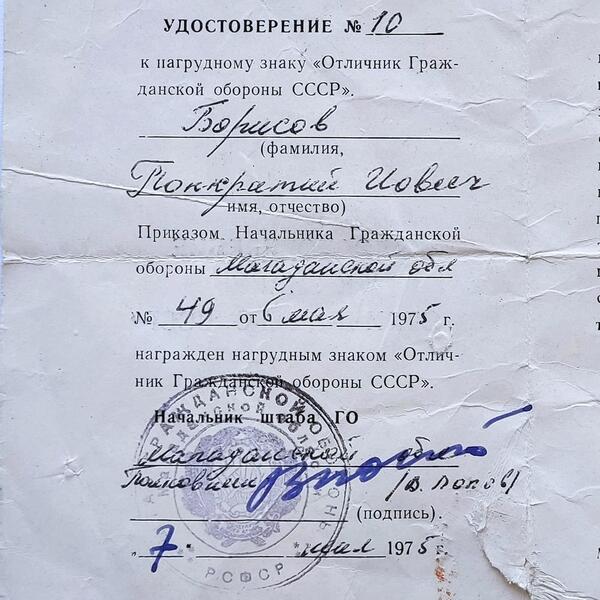 УДОСТОВЕРЕНИЕ № 10
к нагрудному знаку «Отличник Граж-
данской обороны СССР».
Борисов
(фамилия,
Понкратий Иович
имя, отчество)
Приказом Начальника Гражданской
обороны Магаданской обл
№ 49 от 6 мая 1975 г.
награжден нагрудным знаком «Отлич-
ник Гражданской обороны СССР».
Начальник штаба ГО
Магаданской обл
Полковник (В. Попов)
(подпись).
„7" мая 1975 г.
ГРАЖДАНСКОЙ ОБОРОНЫ
РСФСР